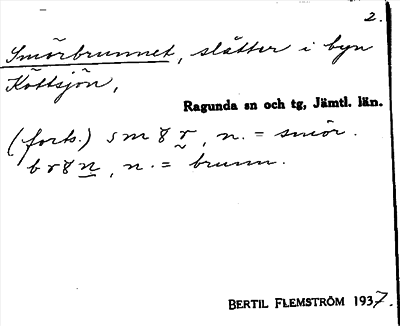 2.
Smörbrunnet, slåtter i byn
Köttsjön,
Ragunda sn och tg, Jämtl. län.
(forts.) sm8r, n. = smör.
br8n, n. = brunn.
BERTIL FLEMSTRÖM 1937.